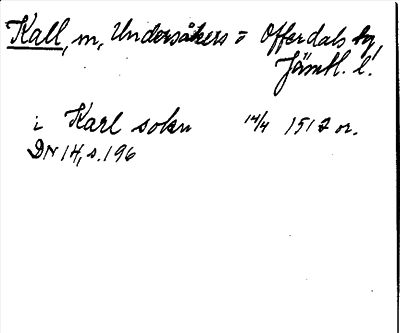 Kall, m, Undersåkers o Offerdals tg
Jämtl. l.
i Karl sokn 14/4 1517 or.
DN 14, s. 196